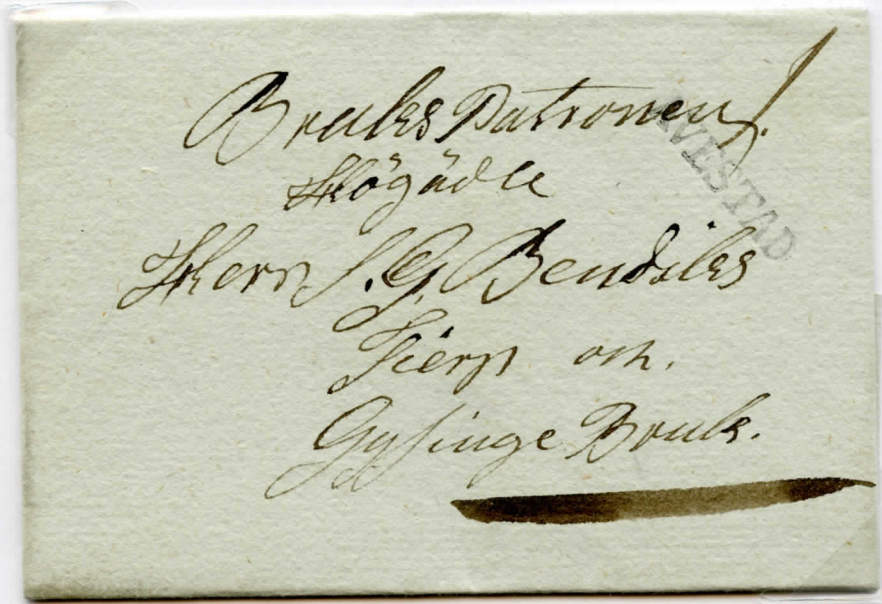 Bruks Patronen
Högädle
Herr S. G. Bendiks
Tierp och.
Gysinge Bruk.
AVESTAD